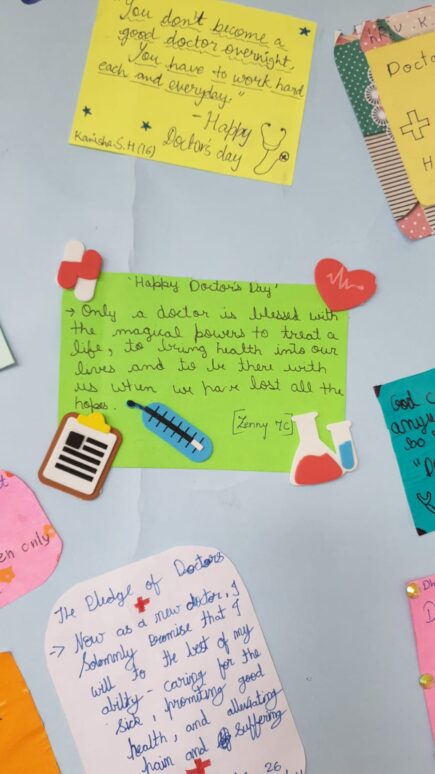 "You don't become a
good doctor overnight,
You have to work hard
each and everyday."
- Happy
Doctor's day
Kanisha S.H (16)
Docto
H
'Happy Doctor's Day'
→ Only a doctor is blessed with
the magical powers to treat a
life, to bring health into our
lives and to be there with
us when we have lost all the
hopes.
[Zenny 7C]
God c
any
so
"D
en only
The Pledge of Doctors
→ Now as a new doctor, I
Solemnly promise that I
will to the best of my
ability - caring for the
sick, promoting good
health, and alleviating
pain and suffering
26
Dh
D